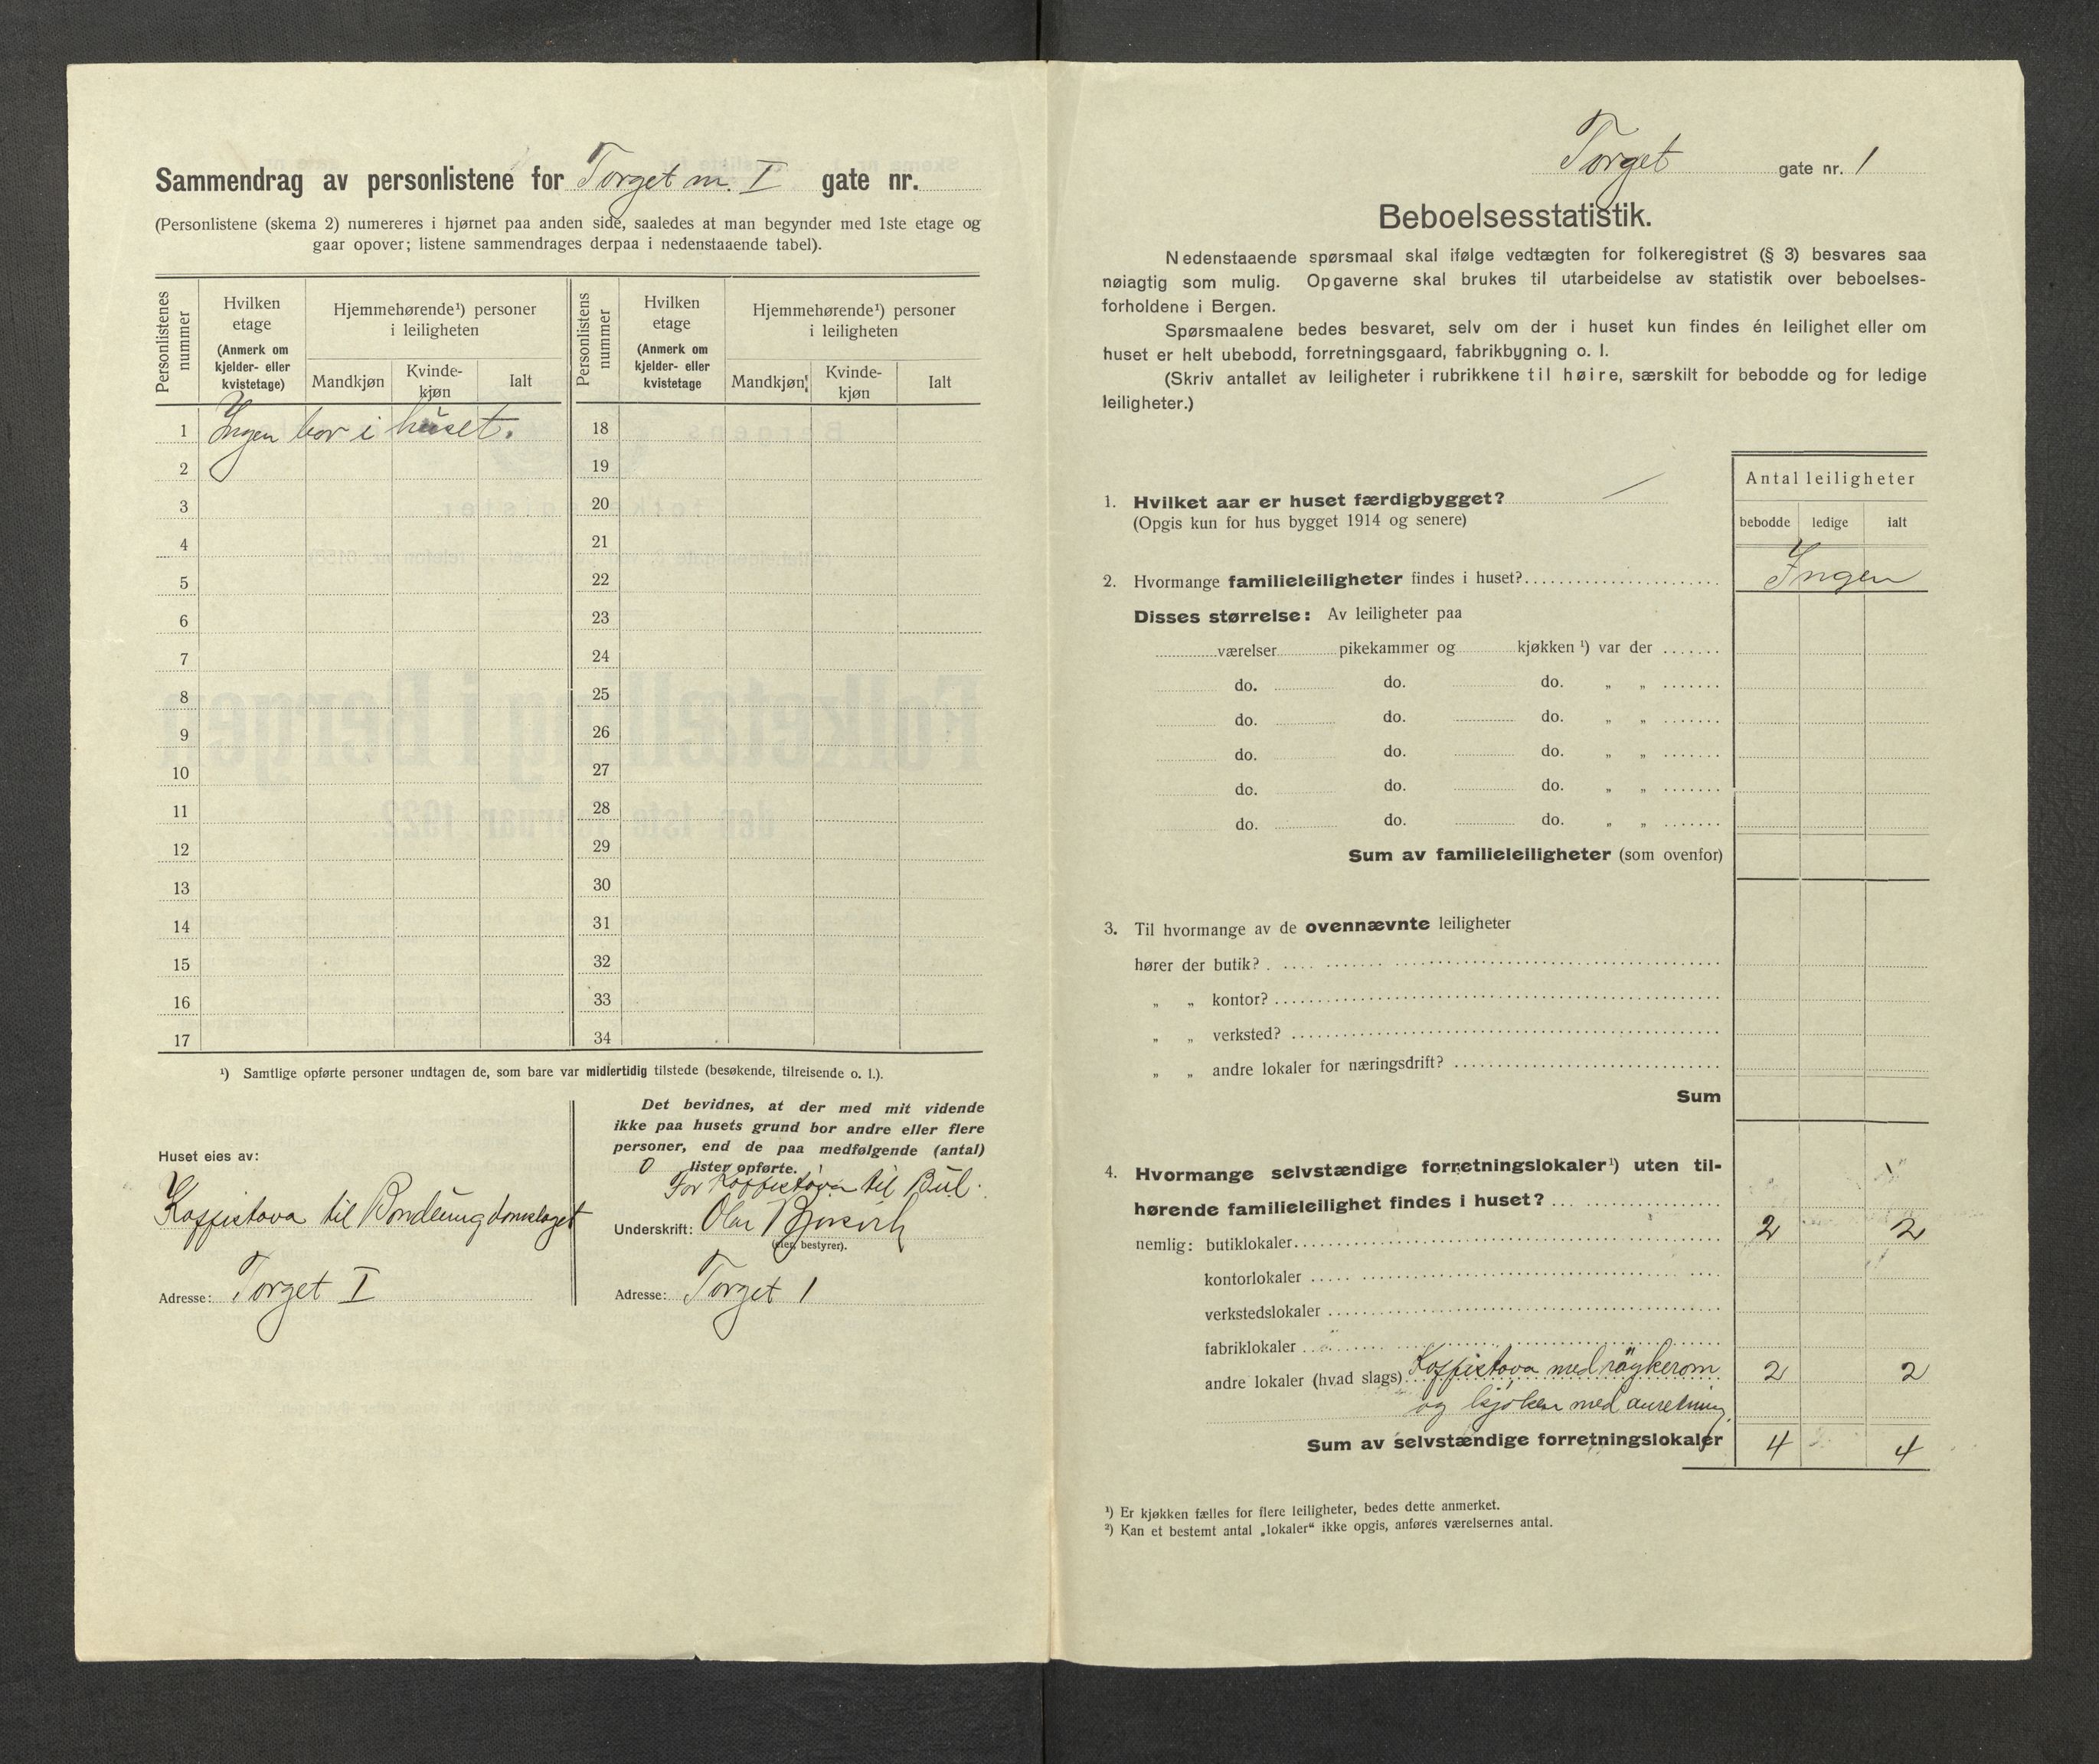 Sammendrag av personlistene for Torget m. I gate nr.
(Personlistene (skema 2) numereres i hjørnet paa anden side, saaledes at man begynder med 1ste etage og
gaar opover; listene sammendrages derpaa i nedenstaaende tabel).
Personlistenes nummer
Hvilken etage (Anmerk om kjelder- eller kvistetage)
Hjemmehørende¹) personer i leiligheten
Mandkjøn Kvinde-kjøn Ialt
Personlistens nummer
Hvilken etage (Anmerk om kjelder- eller kvistetage
Hjemmehørende¹) personer i leiligheten
Mandkjøn Kvinde-kjøn Ialt
1 Ingen bor i huset. 18
2 19
3 20
4 21
5 22
6 23
7 24
8 25
9 26
10 27
11 28
12 29
13 30
14 31
15 32
16 33
17 34
¹) Samtlige opførte personer undtagen de, som bare var midlertidig tilstede (besøkende, tilreisende o. l.).
Huset eies av:
Kaffistova til Bondeungdomslaget
Adresse: Torget I
Det bevidnes, at der med mit vidende
ikke paa husets grund bor andre eller flere
personer, end de paa medfølgende (antal)
0 lister opførte.
For Kaffistova til Bul.
Underskrift: Olav
(eier, bestyrer).
Adresse: Torget 1
Torget gate nr. 1
Beboelsesstatistik.
Nedenstaaende spørsmaal skal ifølge vedtægten for folkeregistret (§ 3) besvares saa
nøiagtig som mulig. Opgaverne skal brukes til utarbeidelse av statistik over beboelses-
forholdene i Bergen.
Spørsmaalene bedes besvaret, selv om der i huset kun findes én leilighet eller om
huset er helt ubebodd, forretningsgaard, fabrikbygning o. l.
(Skriv antallet av leiligheter i rubrikkene til høire, særskilt for bebodde og for ledige
leiligheter.)
Antal leiligheter
bebodde ledige ialt
1. Hvilket aar er huset færdigbygget?
(Opgis kun for hus bygget 1914 og senere)
2. Hvormange familieleiligheter findes i huset? Ingen
Disses størrelse: Av leiligheter paa
værelser pikekammer og kjøkken ¹) var der
do. do. do. „ „
do. do. do. „ „
do. do. do. „ „
do. do. do. „ „
do. do. do. „ „
Sum av familieleiligheter (som ovenfor)
3. Til hvormange av de ovennævnte leiligheter
hører der butik?
„ „ kontor?
„ „ verksted?
„ „ andre lokaler for næringsdrift?
Sum
4. Hvormange selvstændige forretningslokaler¹) uten til-
hørende familieleilighet findes i huset?
nemlig: butiklokaler 2 2
kontorlokaler
verkstedslokaler
fabriklokaler
andre lokaler (hvad slags) Kaffistova med röykerom 2 2
og kjøken med anretning
Sum av selvstændige forretningslokaler 4 4
¹) Er kjøkken fælles for flere leiligheter, bedes dette anmerket.
²) Kan et bestemt antal „lokaler“ ikke opgis, anføres værelsernes antal.